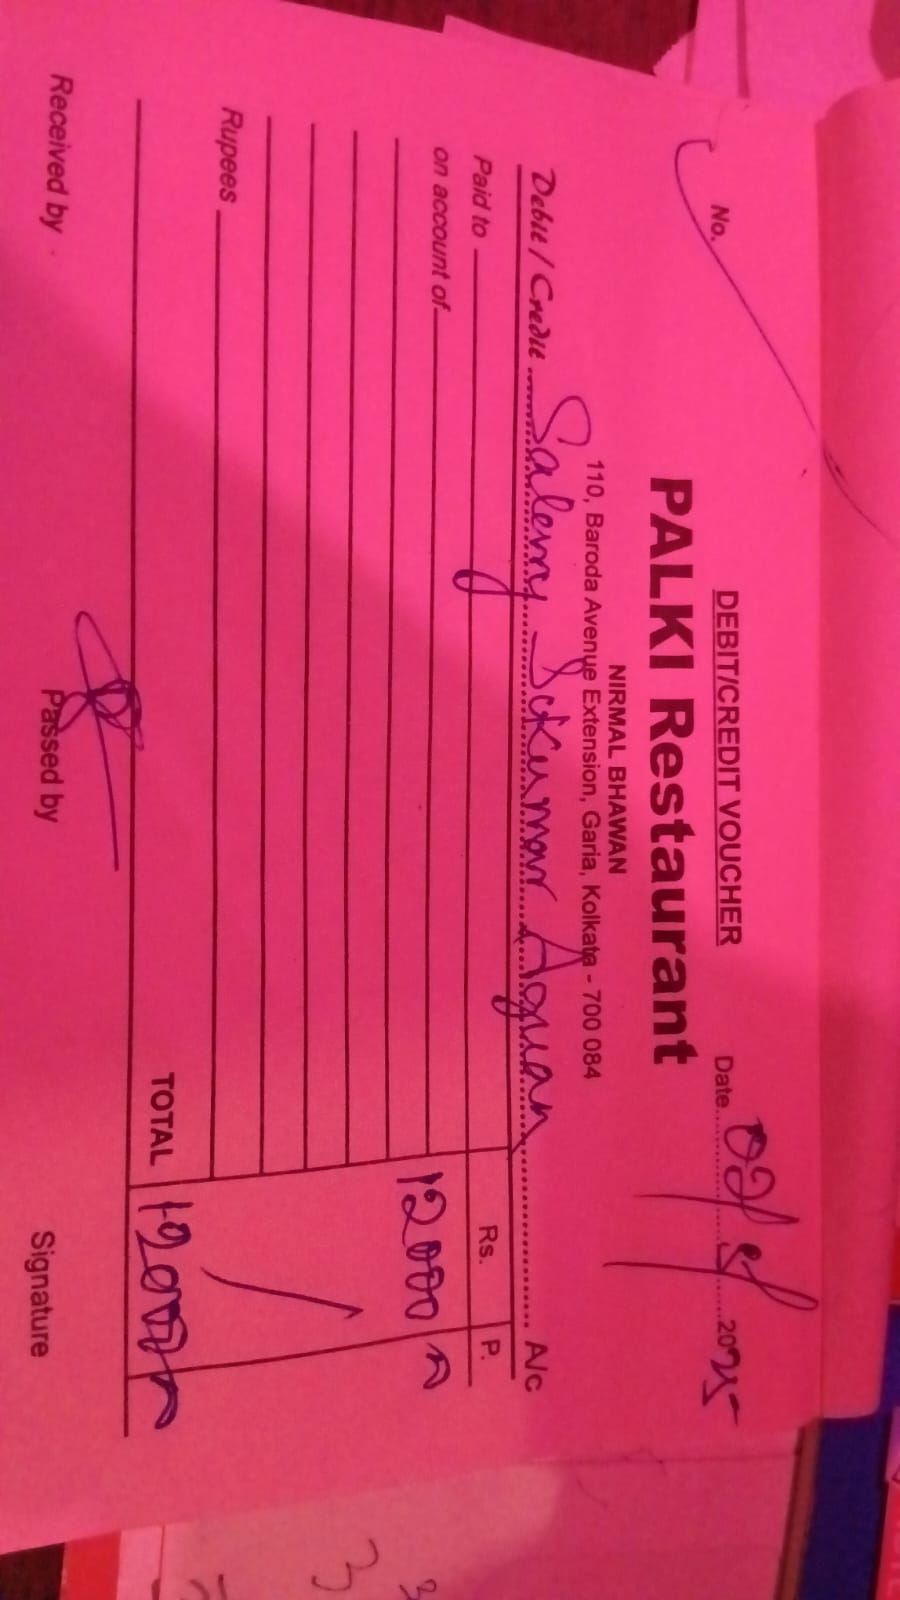 DEBIT/CREDIT VOUCHER
No. Date 02/ 2025
PALKI Restaurant
NIRMAL BHAWAN
110, Baroda Avenue Extension, Garia, Kolkata - 700 084
Debit / Credit Salery Sukumar A/c
Paid to Rs. P.
on account of
12000
Rupees
TOTAL 12000
Received by Passed by Signature
3
3